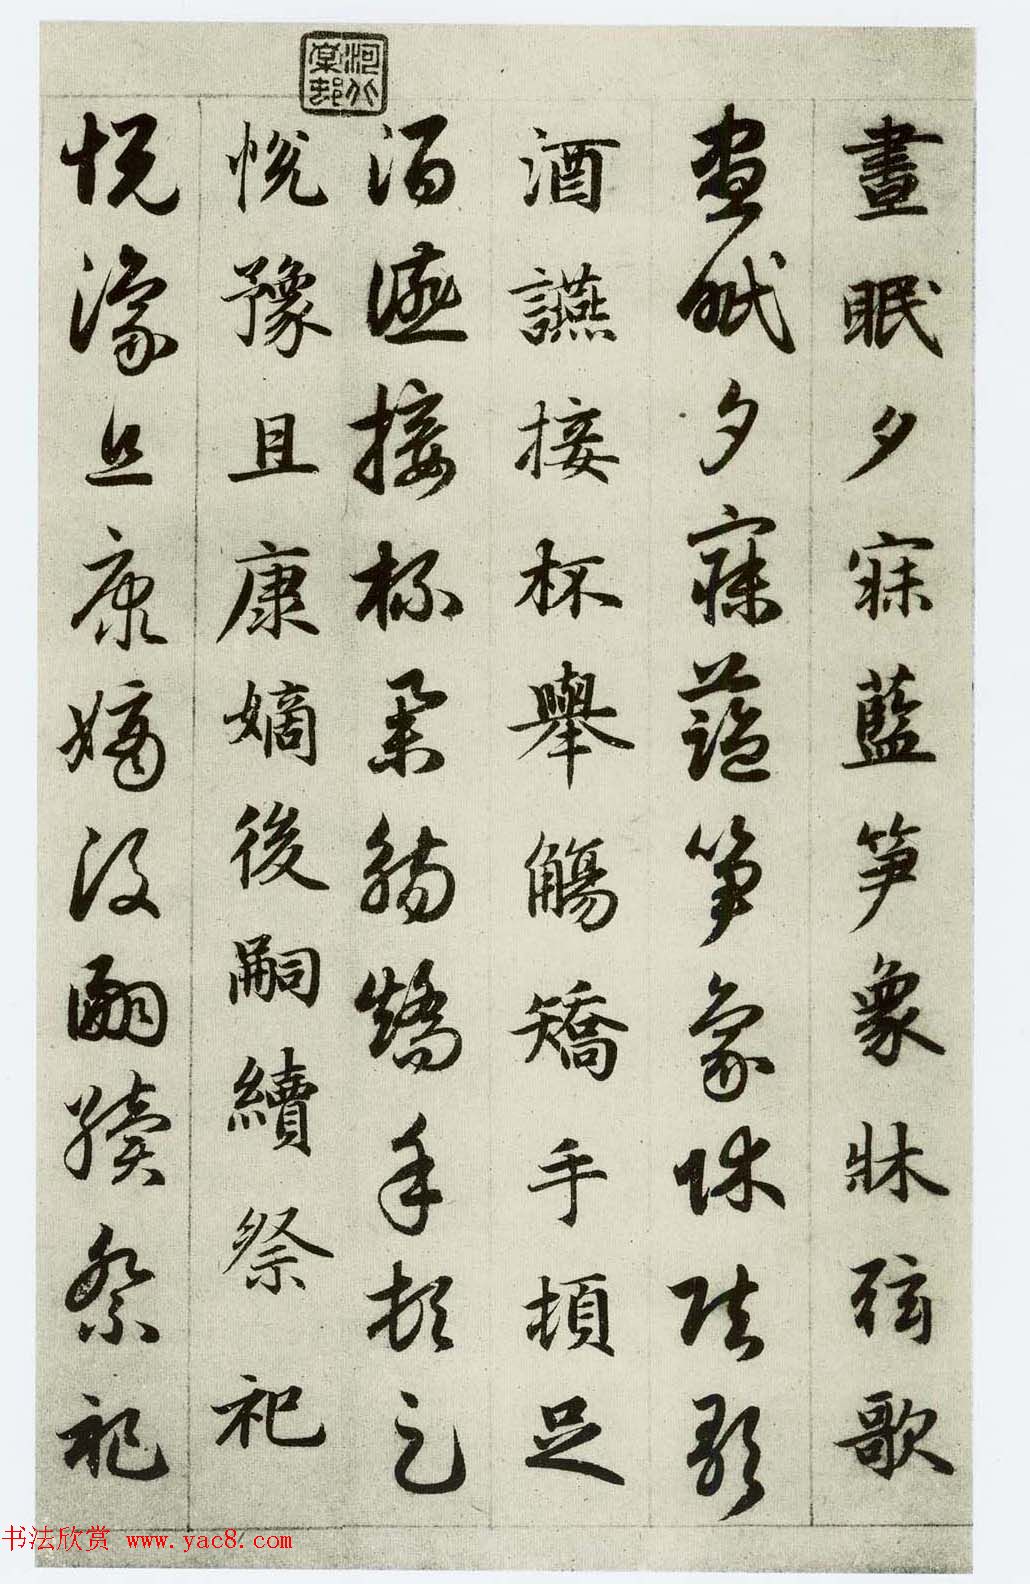 晝眠夕寐藍笋象牀弦歌
晝眠夕寐藍笋象牀弦歌
酒讌接杯舉觴矯手頓足
酒讌接杯舉觴矯手頓足
悅豫且康嫡後嗣續祭祀
悅豫且康嫡後嗣續祭祀
书法欣赏 www.yac8.com